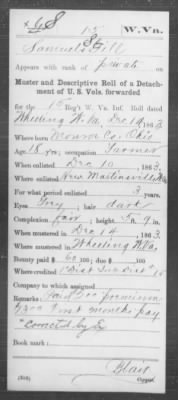 G S 15 W. Va.
Samuel S Hill
Appears with rank of privat on
Muster and Descriptive Roll of a Detach-
ment of U. S. Vols. forwarded
for the 15 Reg't W. Va. Inf. Roll dated
Wheeling W. Va. Dec 14, 1863.
Where born Monroe Co. Ohio
Age 18 y'rs; occupation Farmer
When enlisted Dec 10, 1863.
Where enlisted New Martinsville
For what period enlisted 3 years.
Eyes Grey; hair dark
Complexion fair; height 5 ft. 9 in.
When mustered in Dec 14, 1863.
Where mustered in Wheeling W. Va.
Bounty paid $ 60 100; due $ 100
Where credited 1 Dist Sub Dist 15
Company to which assigned
Remarks: Paid 2.00 premium
$13.00 first months pay
Book mark:
Blair
Copyist.